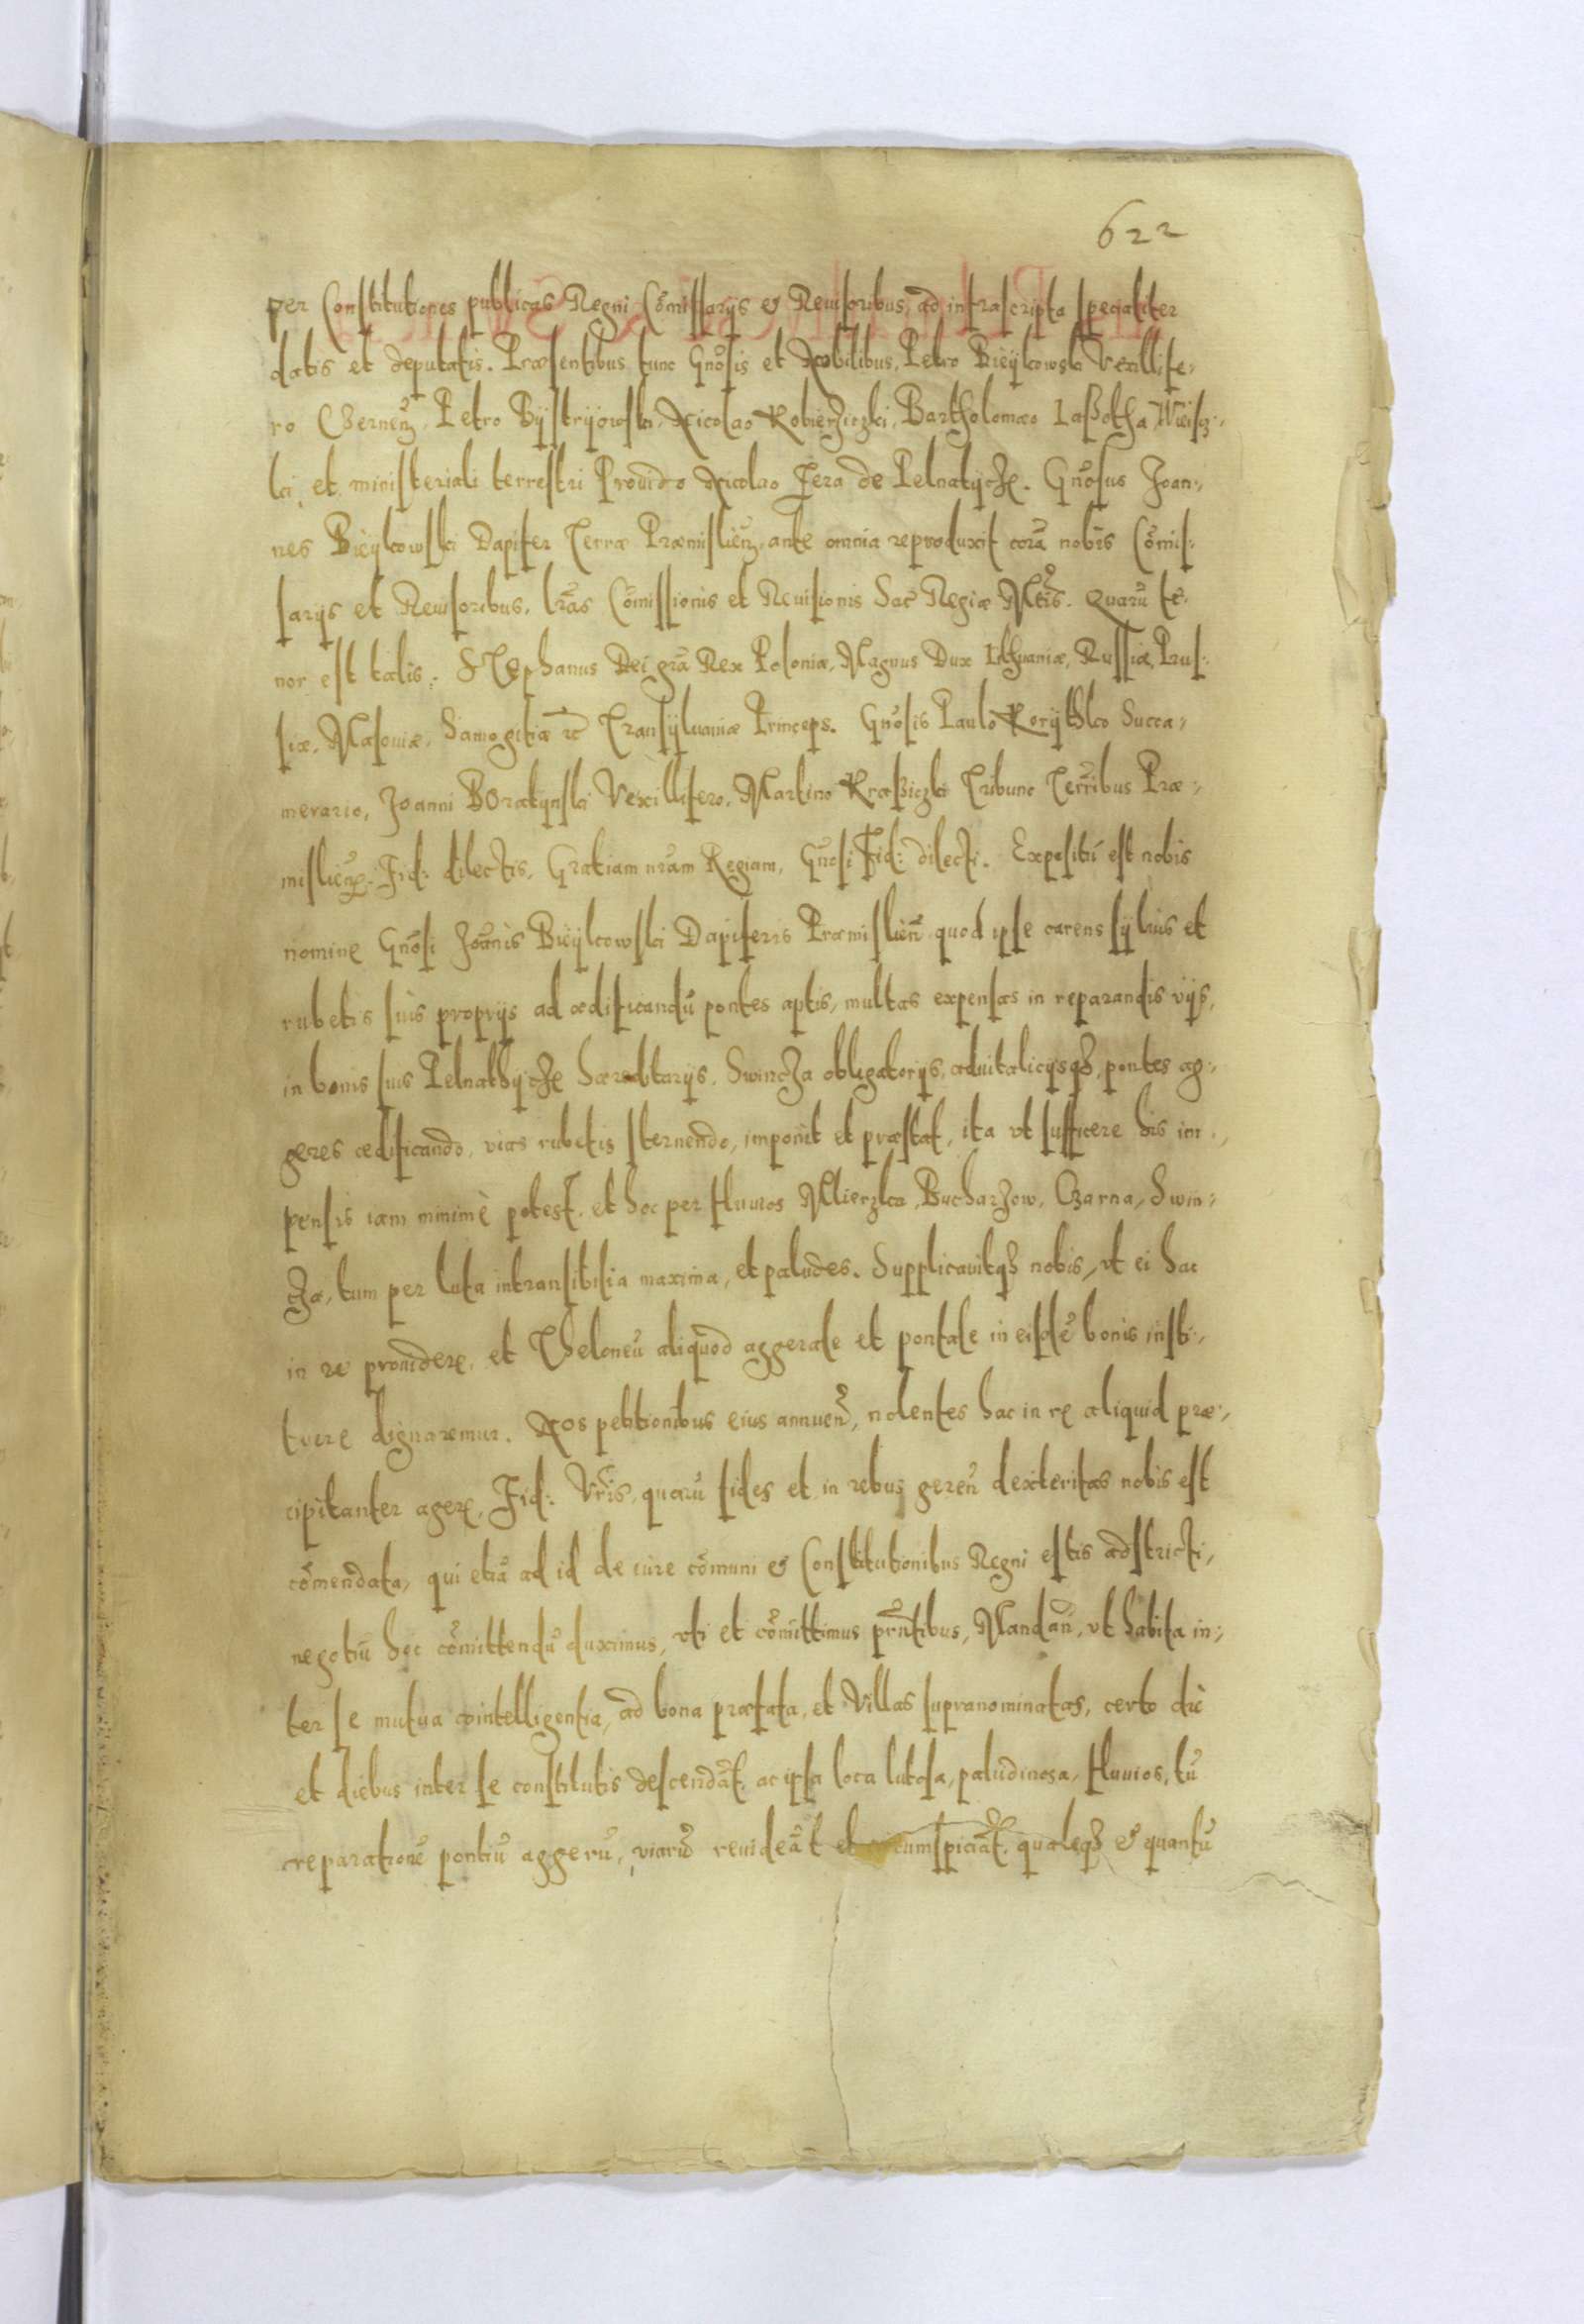 622
per Constitutiones publicas Regni Cõmissarijs & Reuisoribus, ad infrascripta specialiter
datis et deputatis. Præsentibus tunc Gnõsis et Nobilibus, Petro Bieÿkowski Vexillife,
ro Czerneñ, Petro Bÿstrÿowski, Nicolao Kobierziczki, Bartholomæo Laßotha,
ki, et ministeriali terrestri Prouido Nicolao Fera de Pelnatÿcze. Gnõsus Joan,
nes Bieÿkowski Dapifer Terræ Præmislieñ, ante omnia reproduxit corã nobis Cõmis,
sarijs et Reuisoribus, lrãs Cõmissionis et Reuisionis Sac̃ Regiæ Mtis̃. Quarũ te,
nor est talis: Stephanus Dei grã Rex Poloniæ, Magnus Dux Lithuaniæ, Russiæ, Prus,
siæ, Masouiæ, Samogitiæ ꝛc̃ Transÿluaniæ Princeps. Gnõsis Paulo Korÿthko Succa,
merario, Joanni BOratÿnski Vexillifero, Martino Kraßiczki Tribuno Terr̃ibus Præ,
mislieñ, Fid: dilectis, Gratiam nrãm Regiam, Gnõsi Fid: dilecti. Expositũ est nobis
nomine Gnõsi Joãnis Bieÿkowski Dapiferis Præmislieñ quod ipse carens sÿluis et
rubetis suis proprijs ad ædificandũ pontes aptis, multas expensas in reparandis vijs,
in bonis suis Pelnathÿcze hæreditarijs, Swincza obligatorijs, aduitalicijsqȝ, pontes ag,
geres ædificando, vias rubetis sternendo, imponit et præstat, ita vt sufficere his im,
pensis iam minimè potest, et hoc per fluuios Mlierzka, Bucharzow, Czarna, Swin,
cza, tum per luta intransibilia maxima, et paludes. Supplicauitqȝ nobis, vt ei hac
in re prouidere, et Theloneũ aliquod aggerale et pontale in eisdẽ bonis insti,
tuere dignaremur. Nos petitionibus eius annueñ, nolentes hac in re aliquid præ,
cipitanter agere, Fid: Vrĩs, quarũ fides et in rebus gereñ dexteritas nobis est
cõmendata, qui etiã ad id de iure cõmuni & Constitutionibus Regni estis adstricti,
negotiũ hoc cõmittendũ duximus, vti et cõmittimus prñtibus, Mandañ, vt habita in,
ter se mutua cointelligentia, ad bona præfata, et Villas supranominatas, certo die
et diebus inter se constitutis descendãt, ac ipsa loca lutosa, paludinosa, fluuios, tũ
reparationẽ pontiũ aggerũ, viarũ reuideãt et circumspiciãt, qualeqȝ & quantũ